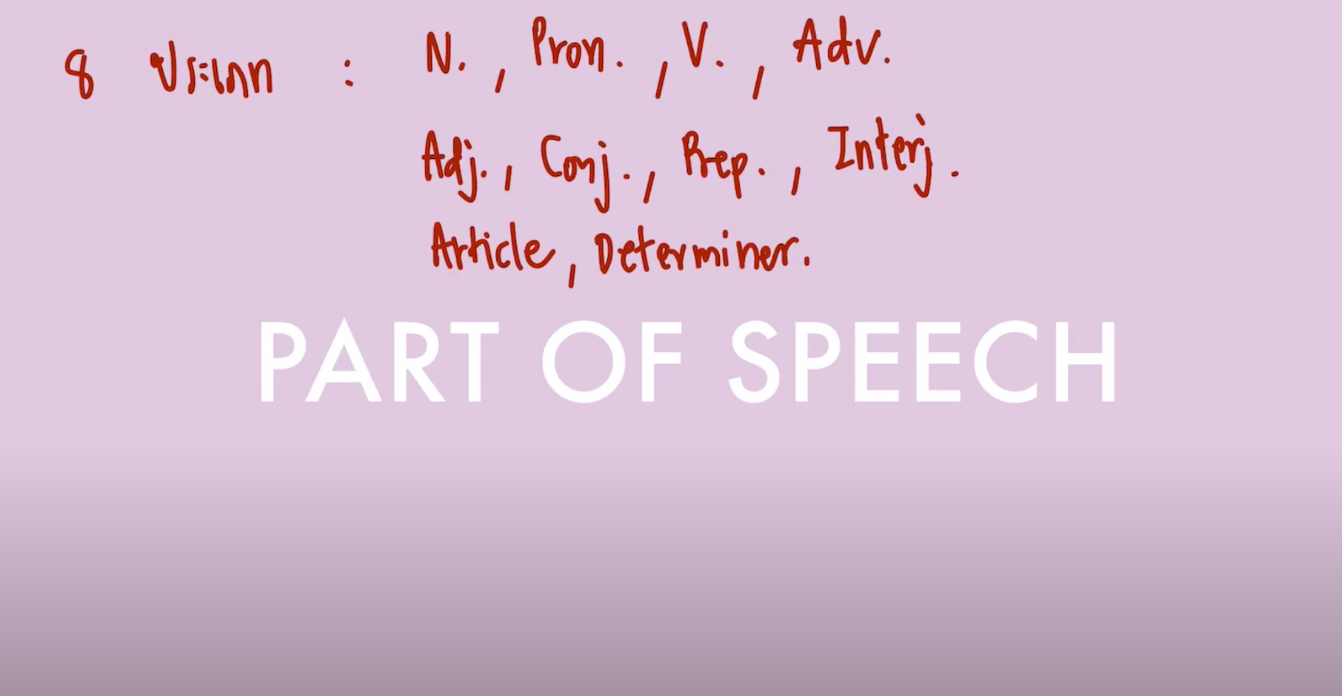 8 ประเภท : N. , Pron. , V. , Adv.
Adj. , Conj. , Prep. , Interj.
Article , Determiner.
PART OF SPEECH